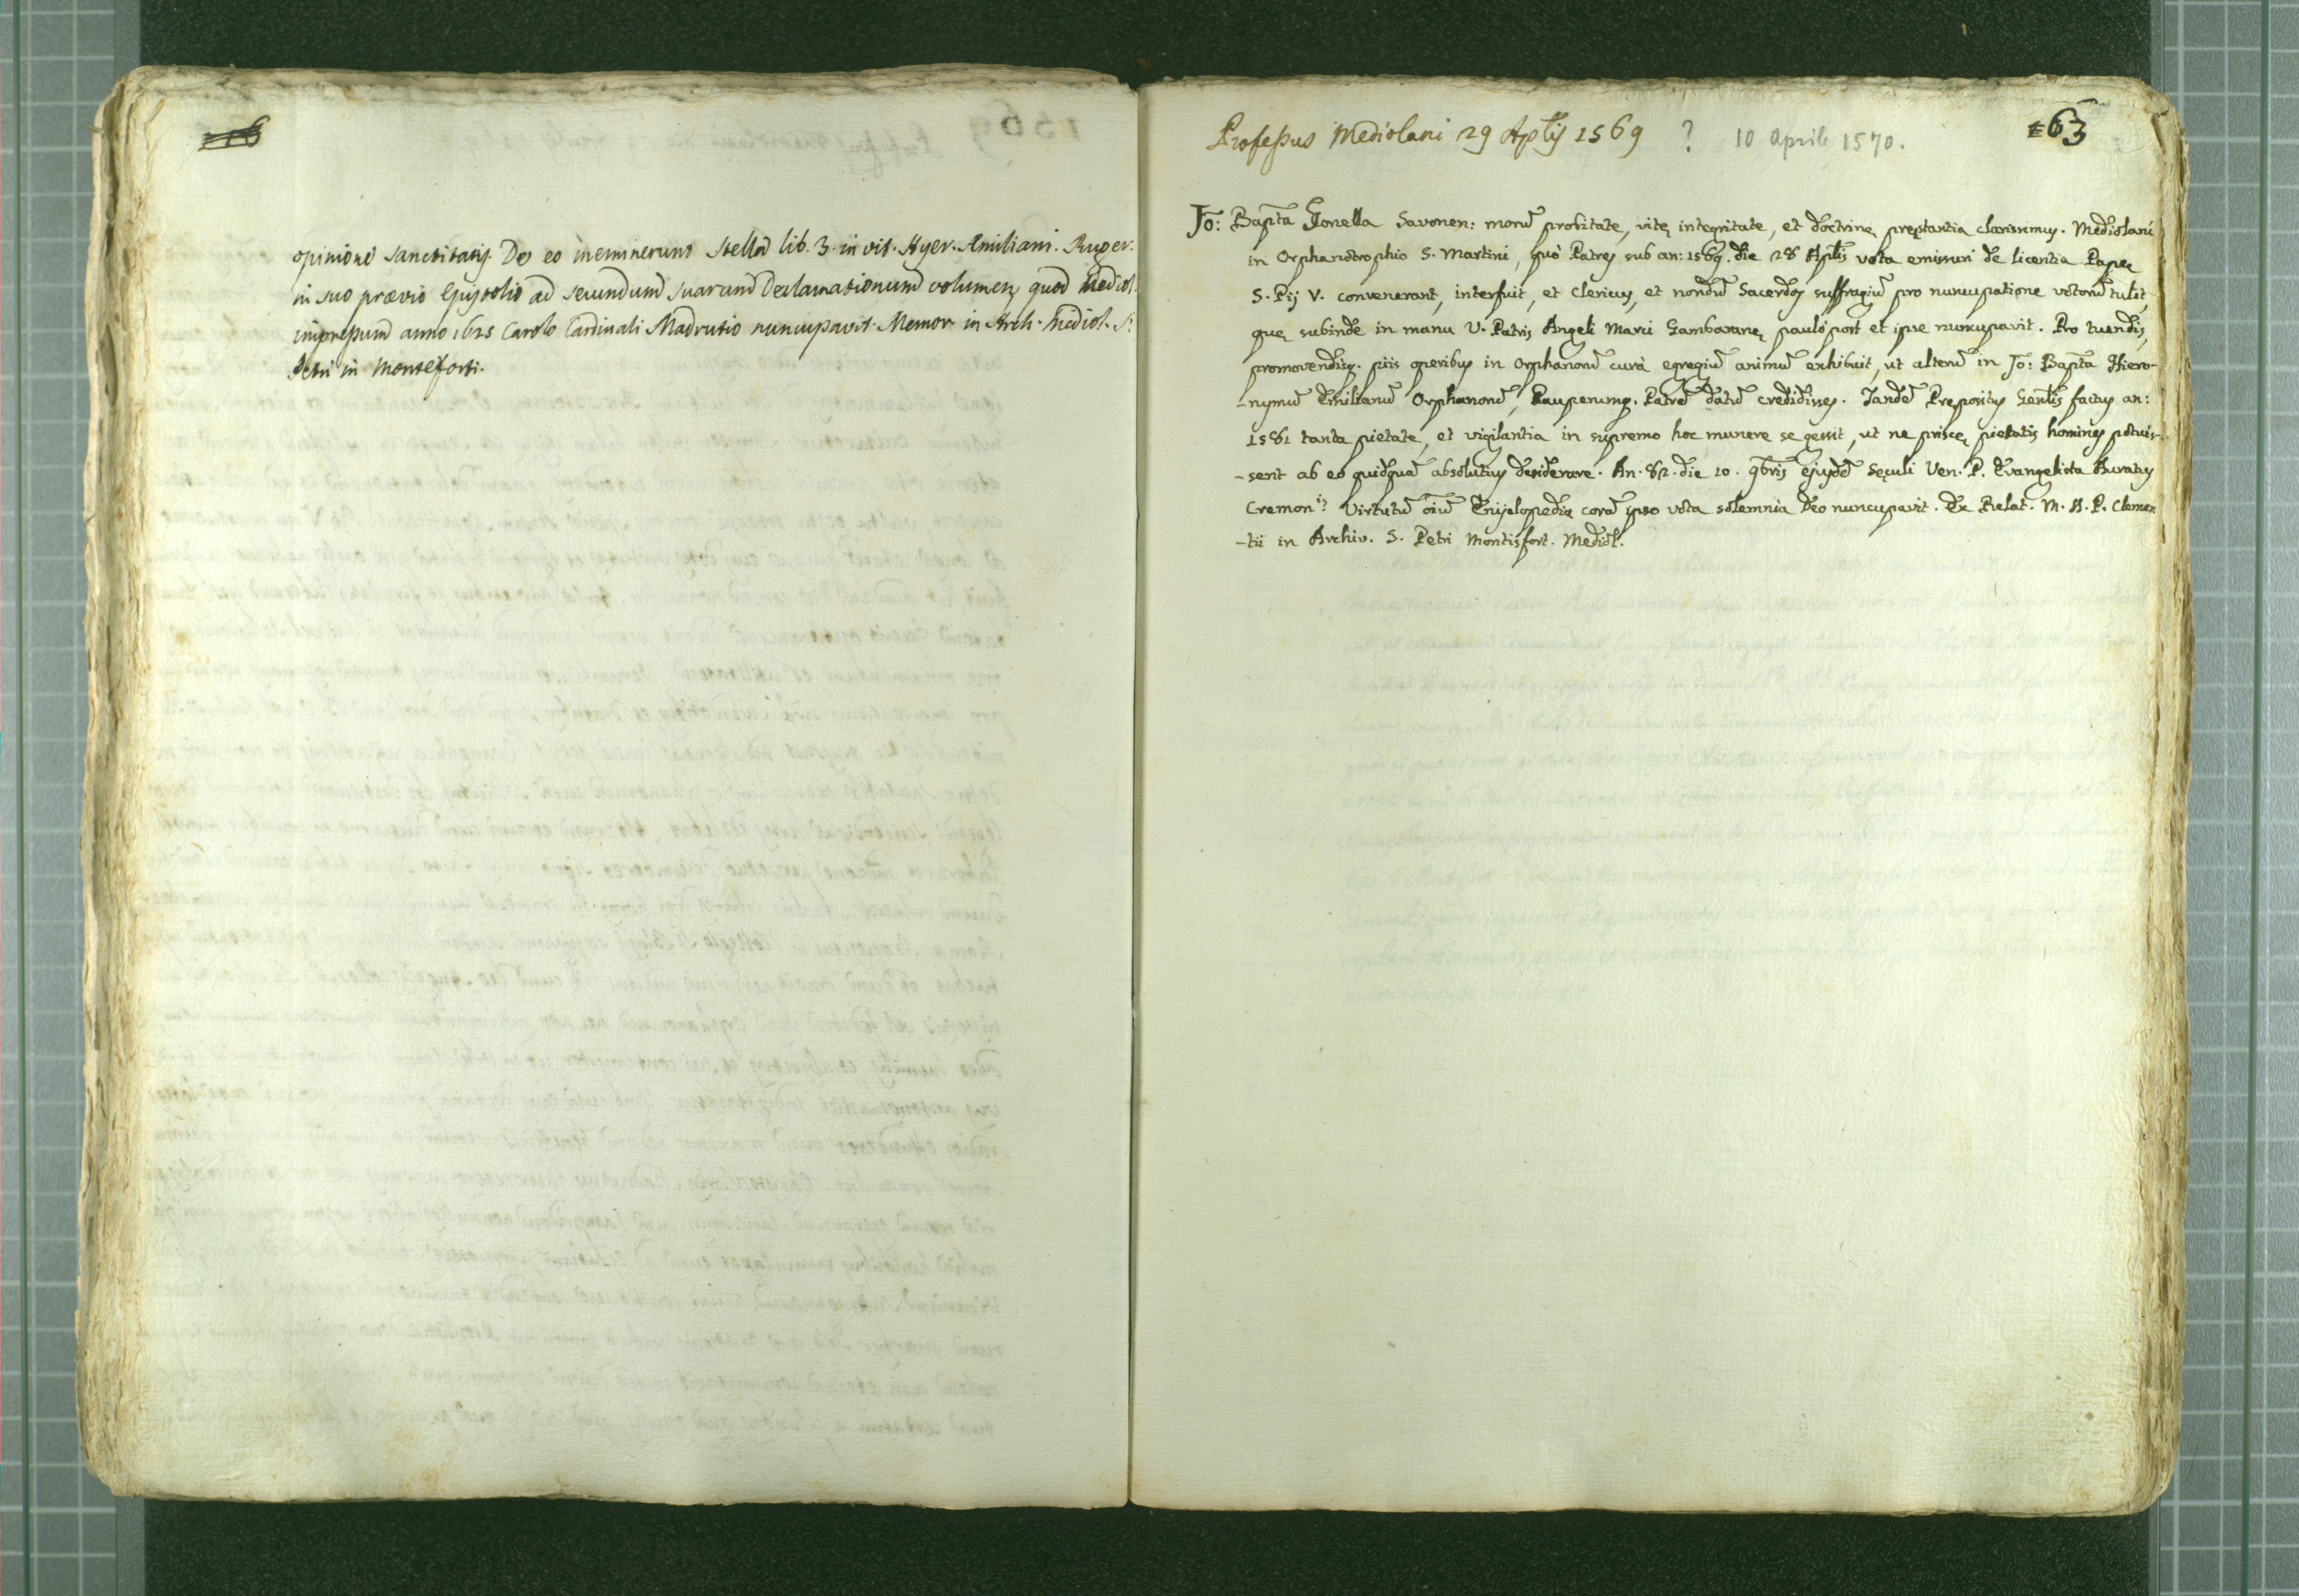 opinione sanctitatis. De eo meminerunt Stella lib. 3. in vit. Hyer. Æmiliani. Ruger.
in suo prævio Epistolio ad secundum suarum Declamationum volumen, quod Mediol.
impressum anno 1625 Carolo Cardinali Madrutio nuncupavit. Memor. in Arch. Mediol. S.
Petri in Monteforti.
Professus Mediolani 29 Aplis 1569 ? 10 aprile 1570.
63
Jo: Bapta Gonella Savonen: morũ probitate, vitę integritate, et doctrinę pręstantia clarissimus. Mediolani
in Orphanotrophio S. Martini, quò Patres sub an: 1569. die 28 Aplis vota emissuri de licentia Papę
S. Pij V. convenerant, interfuit, et Clericus, et nondũ Sacerdos suffragiũ pro nuncupatione votorũ tulit,
quę subinde in manu V. Patris Angeli Marci Gambaranę paulò post et ipse nuncupavit. Pro tuendis,
promovendisq. piis operibus in Orphanorũ curà egregiũ animũ exhibuit, ut alterũ in Jo: Bapta Hiero-
-nymũ Emilianũ Orphanorũ, Pauperumq. Patrẽ datũ credidisses. Tandẽ Prępositus Genlis factus an:
1581 tanta pietate, et vigilantia in supremo hoc munere se gessit, ut ne priscę pietatis homines potuis-
-sent ab eo quidquã absolutius desiderare. An. 82. die 10. 9bris ejusdẽ Sęculi Ven. P. Evangelista Auratus
Cremon.is Virtutũ oĩũ Encyclopedia corã ipso vota solemnia Deo nuncupavit. Ex Relat. M. A. P. Clemen
-tii in Archiv. S. Petri Montisfort. Mediol.